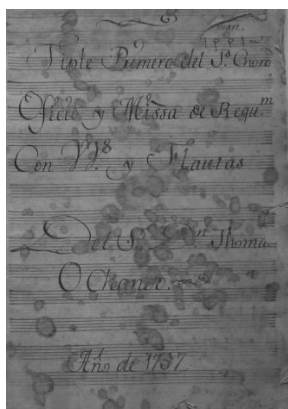 Tiple Primero del Pº. Choro
Oficio y Missa de Requ.ᵐ
Con Vˢ. y Flautas
Del S.ʳ Dⁿ Thomas
Ochando.
Año de 1757